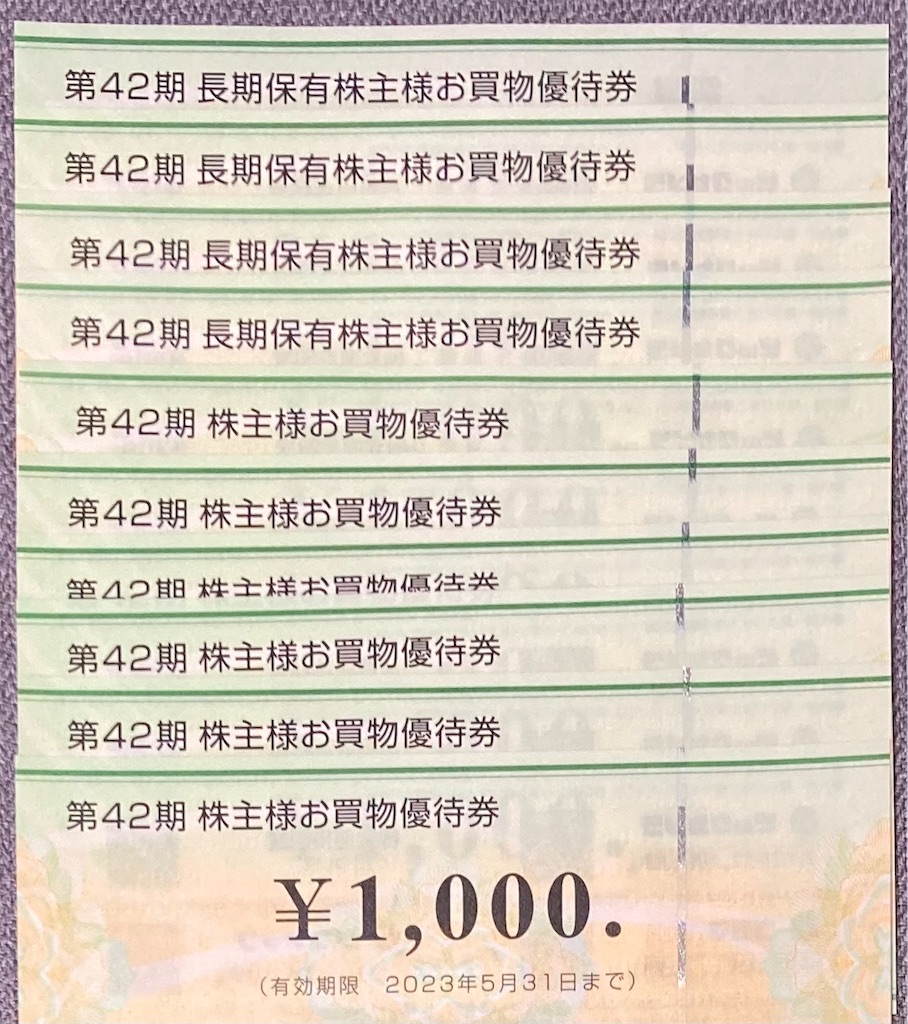 第42期 長期保有株主様お買物優待券
第42期 長期保有株主様お買物優待券
第42期 長期保有株主様お買物優待券
第42期 長期保有株主様お買物優待券
第42期 株主様お買物優待券
第42期 株主様お買物優待券
第42期 株主様お買物優待券
第42期 株主様お買物優待券
第42期 株主様お買物優待券
第42期 株主様お買物優待券
¥1,000.
（有効期限　2023年5月31日まで）